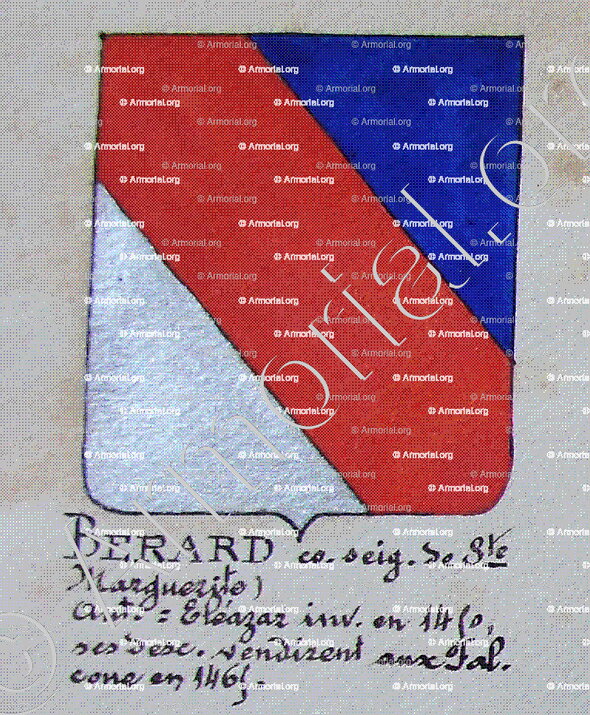 Armorial.org
© Armorial.org
BERARD co. seig. de Ste
Marguerite)
Aut. = Eléazar inv. en 1450,
ses desc. vendirent aux Fal.
cone en 1465.